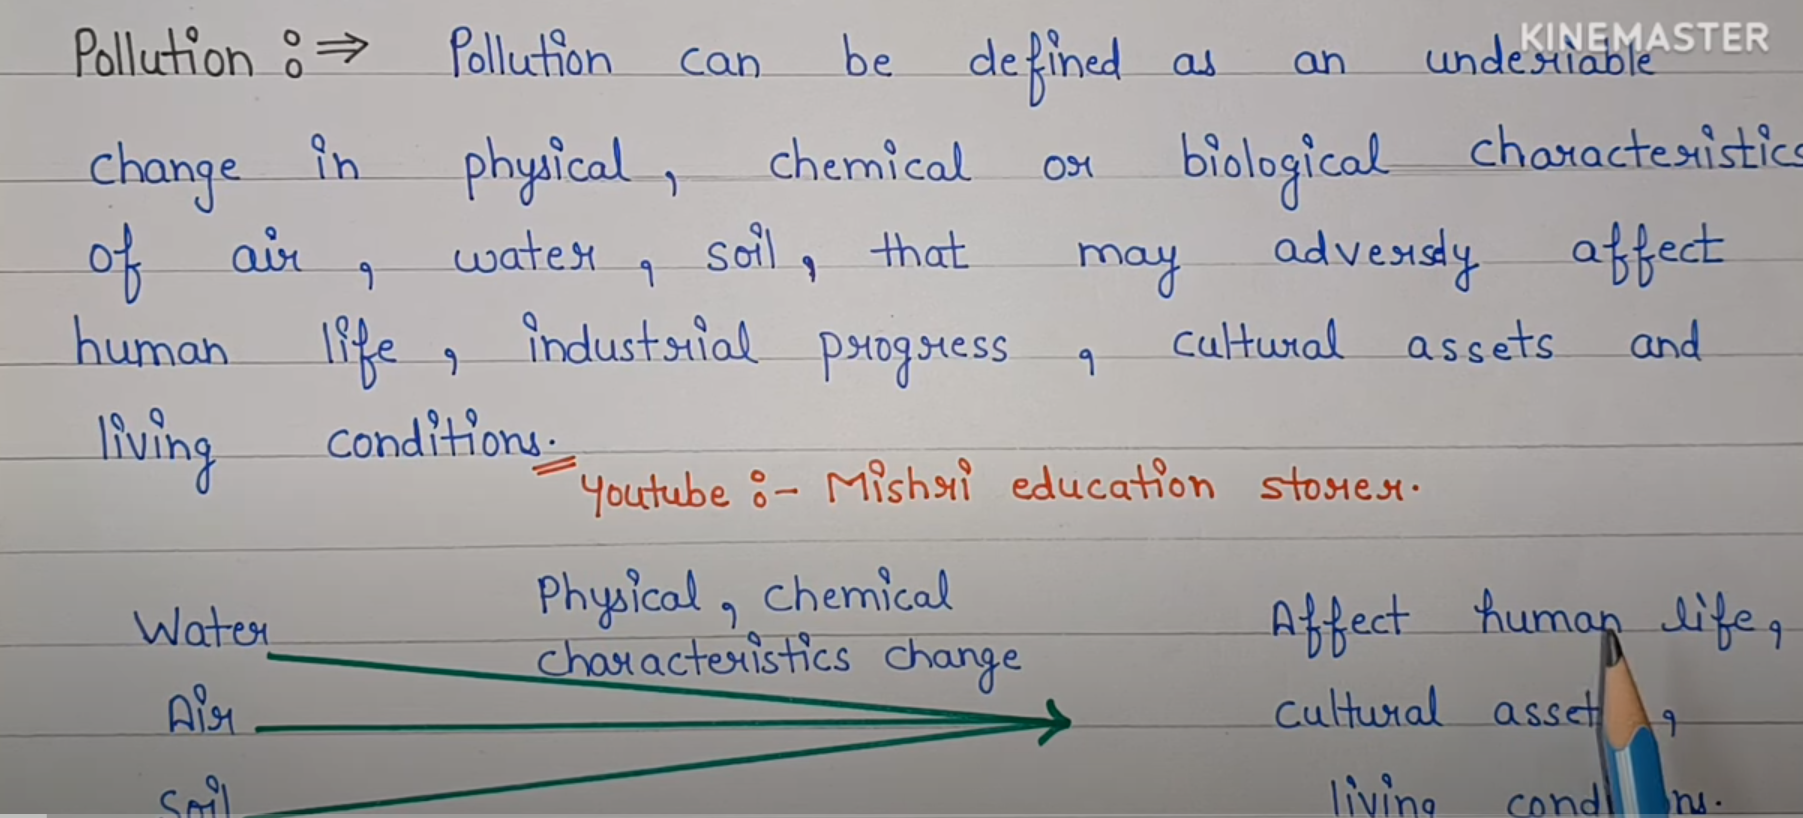 KINEMASTER
Pollution :⇒ Pollution can be defined as an underiable
change in physical, chemical or biological characteristics
of air, water, soil, that may adversdy affect
human life, industrial progress, cultural assets and
living conditions.
Youtube :- Mishri education storer.
Physical, chemical
characteristics change
Water
Air
Soil
Affect human life,
cultural asset ,
living cond ns.